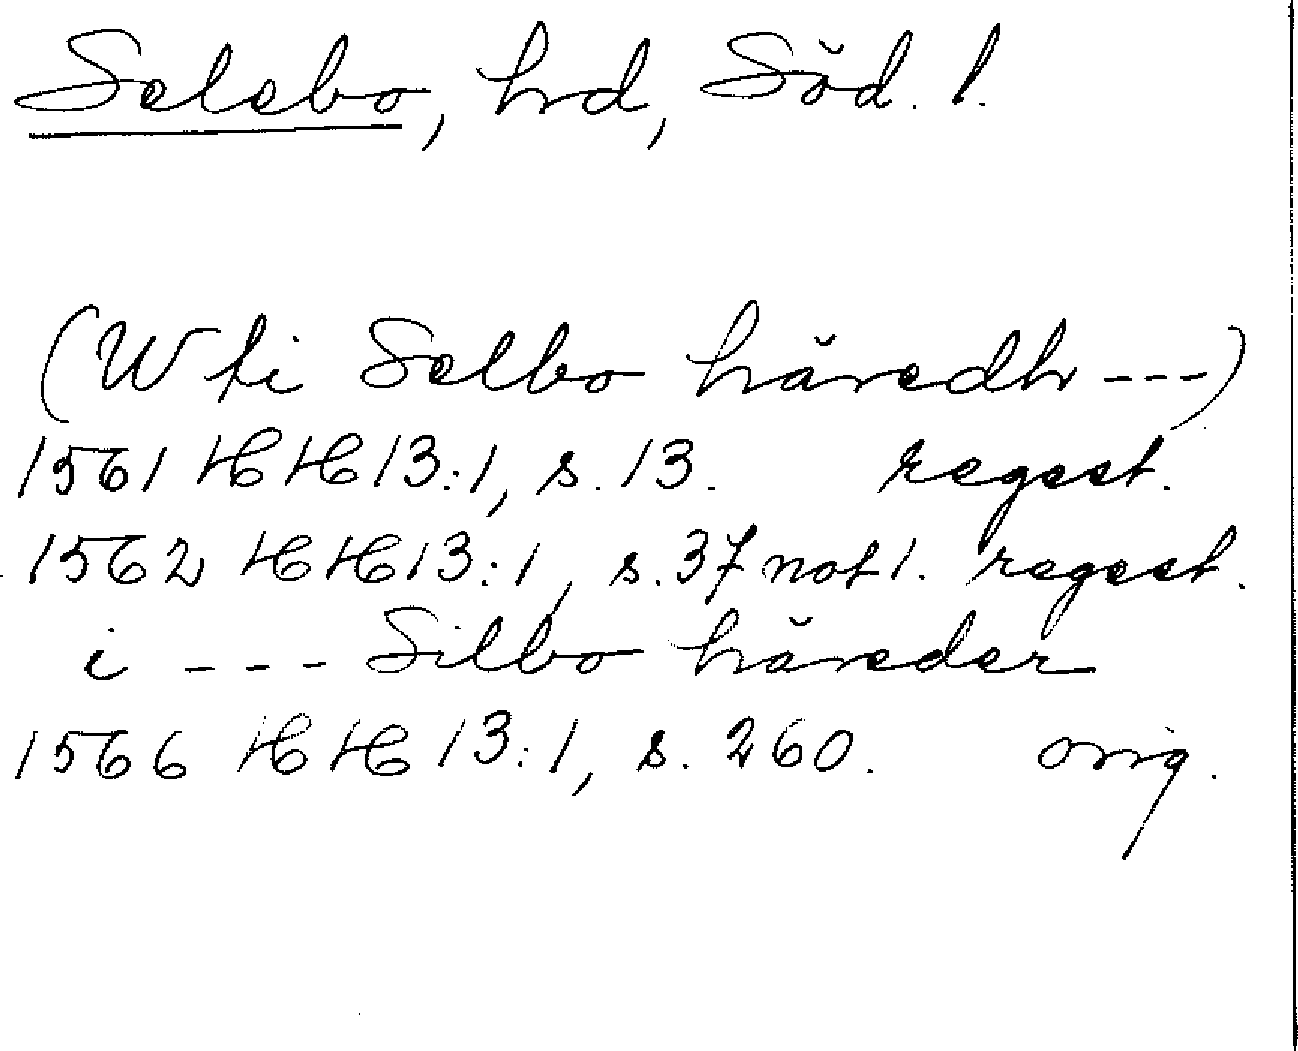 Selebo, hd, Söd. l.
(Wti Selbo häredh ---)
1561 HH 13:1, s. 13. regest.
1562 HH 13:1, s. 37 not 1. regest.
i --- Silbo häreder
1566 HH 13:1, s. 260. orig.